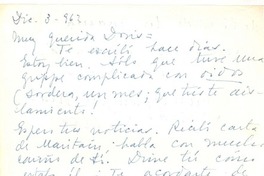 Dic. 3 - 962
Muy querida Doris =
Te escribí hace días.
Estoy bien. Sólo que tuve una
grippe complicada con oidos
(sordera, un mes; que triste ais-
lamiento!
Espero tus noticias. Recibí carta
de Maritain, habla con mucho
cariño de ti. Dime si cómo
te acordaste de